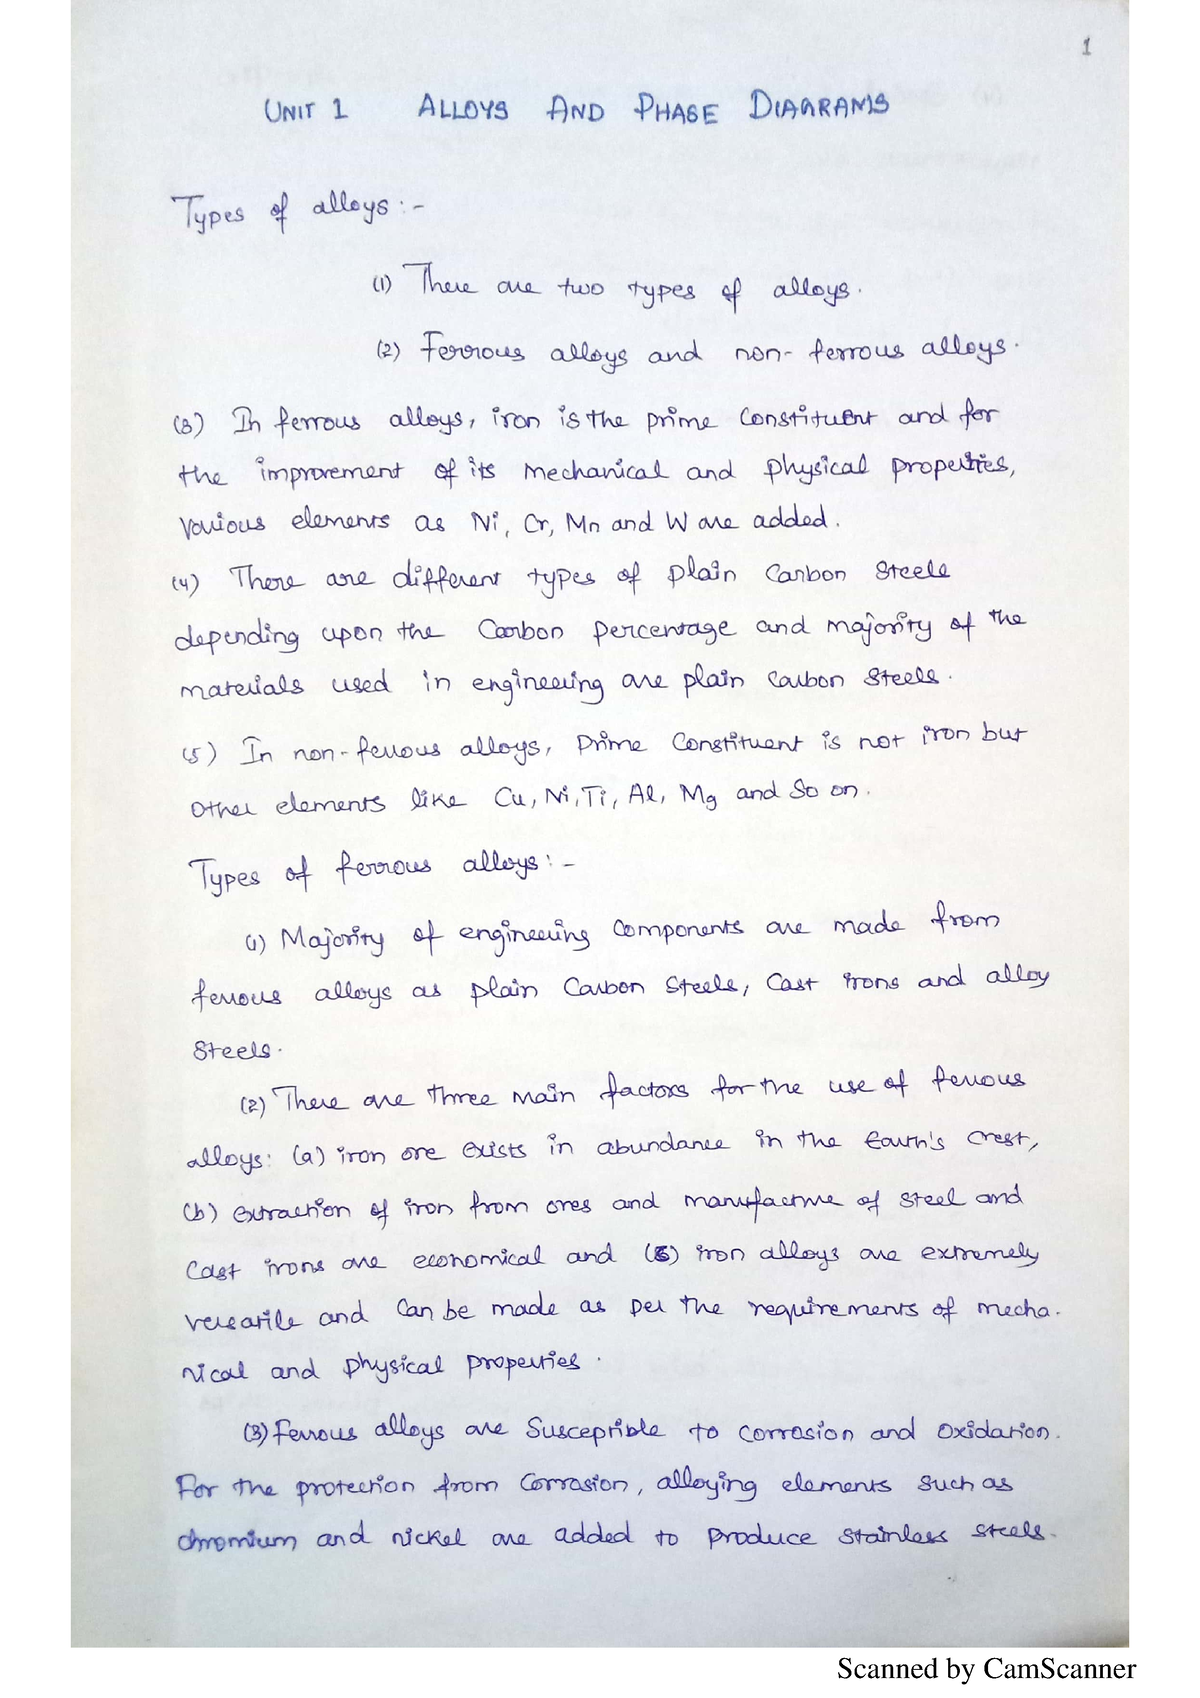 1
UNIT 1 ALLOYS AND PHASE DIAGRAMS
Types of alloys :-
(1) There are two types of alloys.
(2) Ferrous alloys and non-ferrous alloys.
(3) In ferrous alloys, iron is the prime constituent and for
the improvement of its mechanical and physical properties,
various elements as Ni, Cr, Mn and W are added.
(4) There are different types of plain carbon steels
depending upon the carbon percentage and majority of the
materials used in engineering are plain carbon steels.
(5) In non-ferrous alloys, prime constituent is not iron but
other elements like Cu, Ni, Ti, Al, Mg and so on.
Types of ferrous alloys :-
(1) Majority of engineering components are made from
ferrous alloys as plain carbon steels, cast irons and alloy
steels.
(2) There are three main factors for the use of ferrous
alloys: (a) iron ore exists in abundance in the Earth's crest,
(b) extraction of iron from ores and manufacture of steel and
cast irons are economical and (c) iron alloys are extremely
versatile and can be made as per the requirements of mecha-
nical and physical properties.
(3) Ferrous alloys are susceptible to corrosion and oxidation.
For the protection from corrosion, alloying elements such as
chromium and nickel are added to produce stainless steels.
Scanned by CamScanner